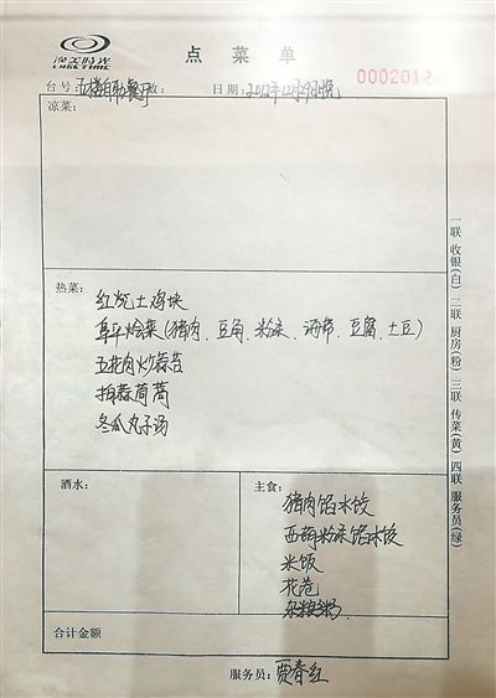 渔美时光
LUSE TIME
点菜单
0002012
台号:五楼自助餐厅 数: 日期:2012年12月29日晚
凉菜:
热菜:
红烧土鸡块
阜平烩菜(猪肉、豆角、粉条、海带、豆腐、土豆)
五花肉炒蒜苔
拍蒜茼蒿
冬瓜丸子汤
酒水:
主食:
猪肉馅水饺
西葫粉条馅水饺
米饭
花卷
杂粮粥
合计金额
服务员:贾春红
一联 收银(白) 二联 厨房(粉) 三联 传菜(黄) 四联 服务员(绿)